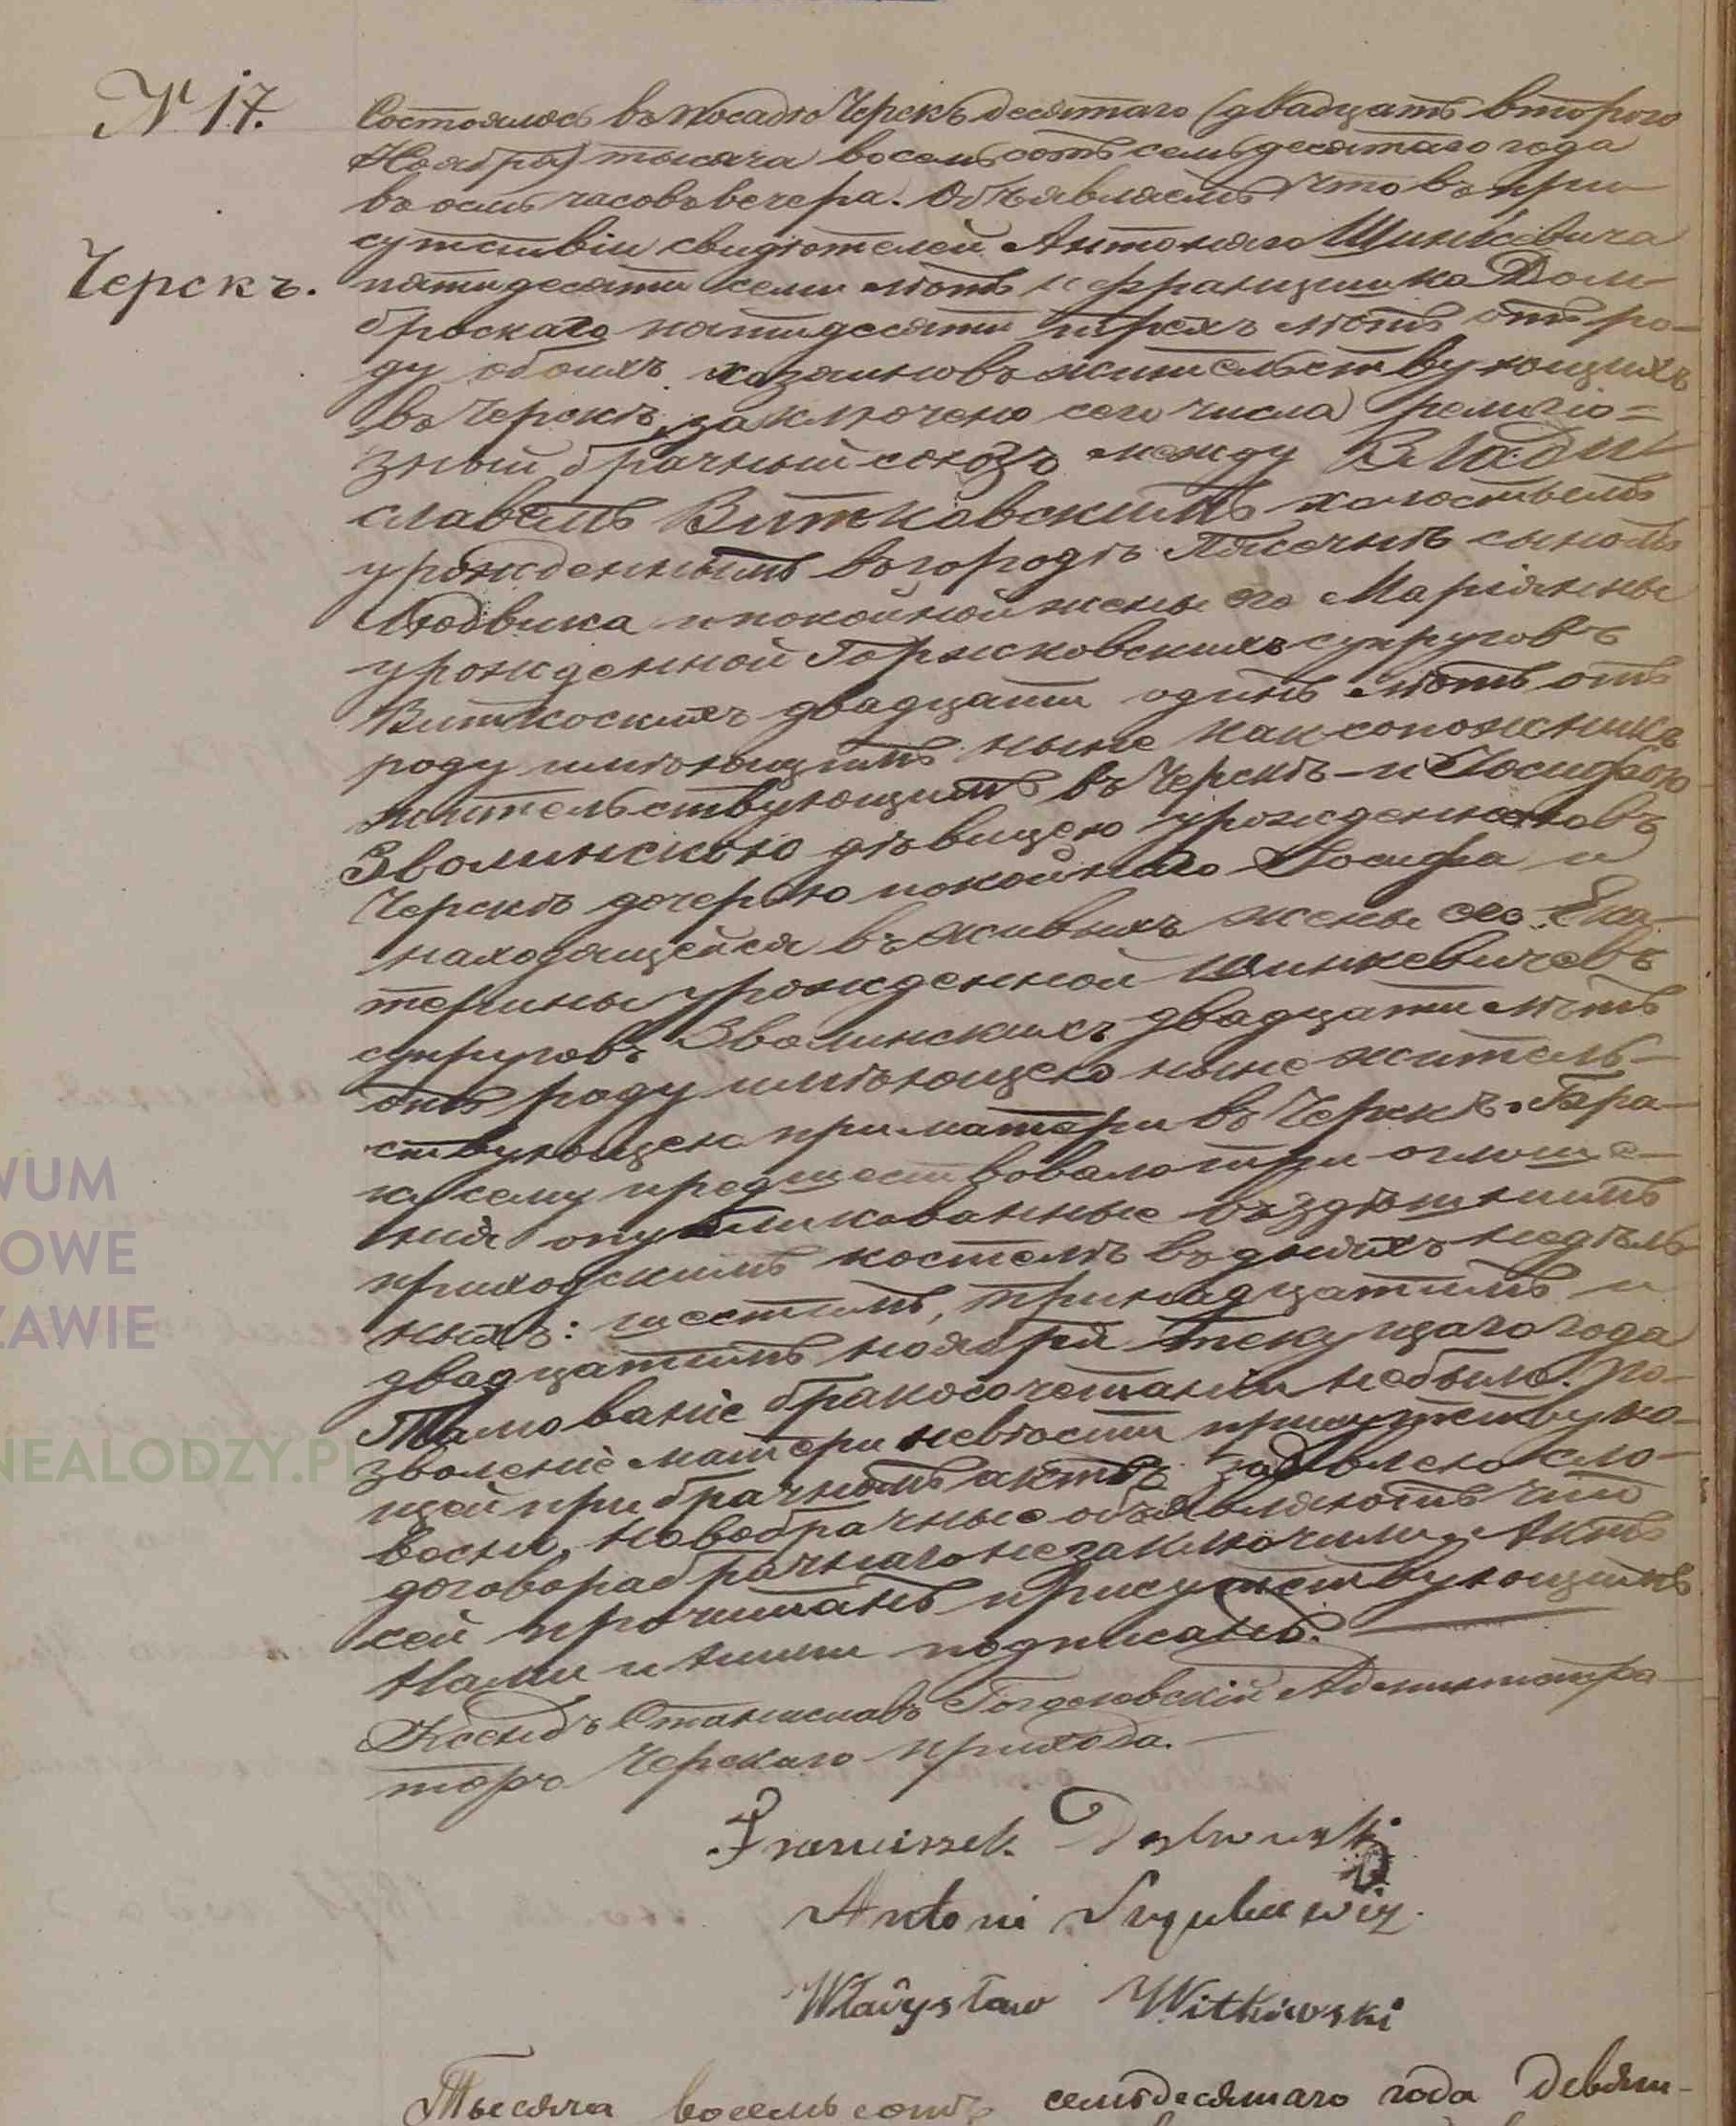 № 17.
Состоялось въ посадѣ Черскъ десятаго (двадцать втораго
Ноября) тысяча восемьсотъ семьдесятаго года
въ осмь часовъ вечера. Объявляемъ что въ при-
сутствіи свидѣтелей Антоняго Шинкевича
Черскъ.
пятидесяти семи лѣтъ и Францишка Дом-
броскаго пятидесяти трехъ лѣтъ отъ ро-
ду обоихъ хозяиновъ жительствующихъ
въ Черскѣ, заключено сего числа религіо=
зный брачный союзъ между Влади-
славемъ Витковскимъ холостымъ
урожденнымъ въ городѣ Пясечнѣ сыномъ
Людвика и покойной жены его Маріянны
урожденной Горжковскихъ супруговъ
Виткоскихъ двадцати одинъ лѣтъ отъ
роду имѣющимъ ныне как сопожника
жительствующимъ въ Черскѣ - и Іосифою
Зволинскою дѣвицею урожденною въ
Черскѣ дочерью покойнаго Іосифа и
находящейся въ живыхъ жены его Ека-
терины урожденной Шинкевичевъ
супруговъ Зволинскихъ двадцати лѣтъ
отъ роду имѣющею ныне житель-
ствующею при матери въ Черскѣ. Бра-
ку сему предшествовало три оглаше-
нія опубликованные въ здѣшнимъ
приходскимъ костелѣ въ дняхъ недѣль-
ныхъ: шестымъ, тринадцатимъ и
двадцатимъ ноября текущаго года
Тамованіе бракосочетаніи небыло. По-
зволеніе матери невѣсти присутствую-
щей при брачномъ актѣ заявлено сло-
весни, новобрачные объявляютъ что
договора брачнаго не заключили. Актъ
сей прочитанъ присутствующимъ
Нами и ними подписанъ.
Ксендзъ Станиславъ Администра-
торъ Черскаго прихода.
Franciszek Dąbrowski
Antoni
Władysław Witkowski
Тысяча восемьсотъ семьдесятаго года девят-
WUM
OWE
ZAWIE
NEALODZY.PL